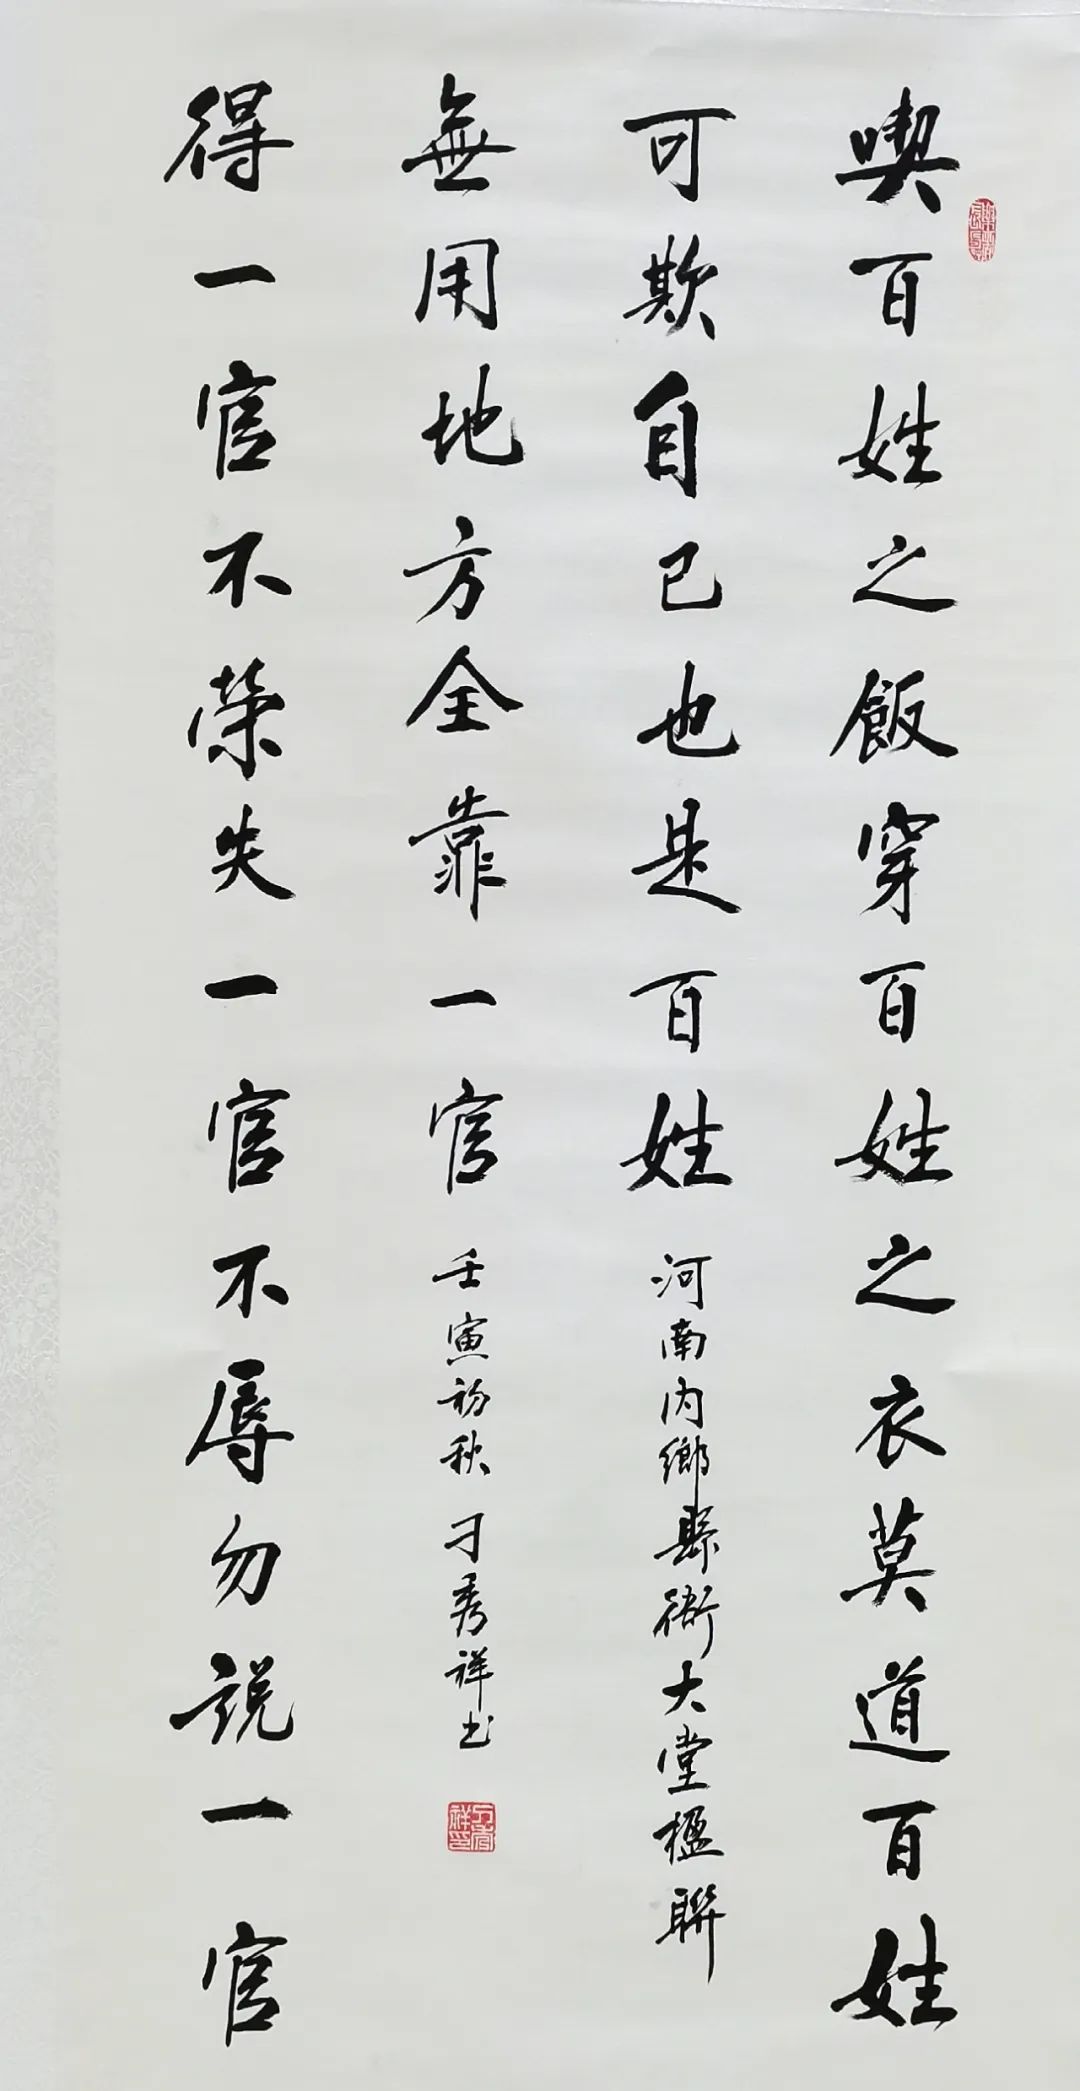 喫百姓之飯穿百姓之衣莫道百姓
可欺自己也是百姓
河南内鄉縣衙大堂楹聯
得一官不榮失一官不辱勿説一官
無用地方全靠一官
壬寅初秋 刁秀祥书
刁秀祥印